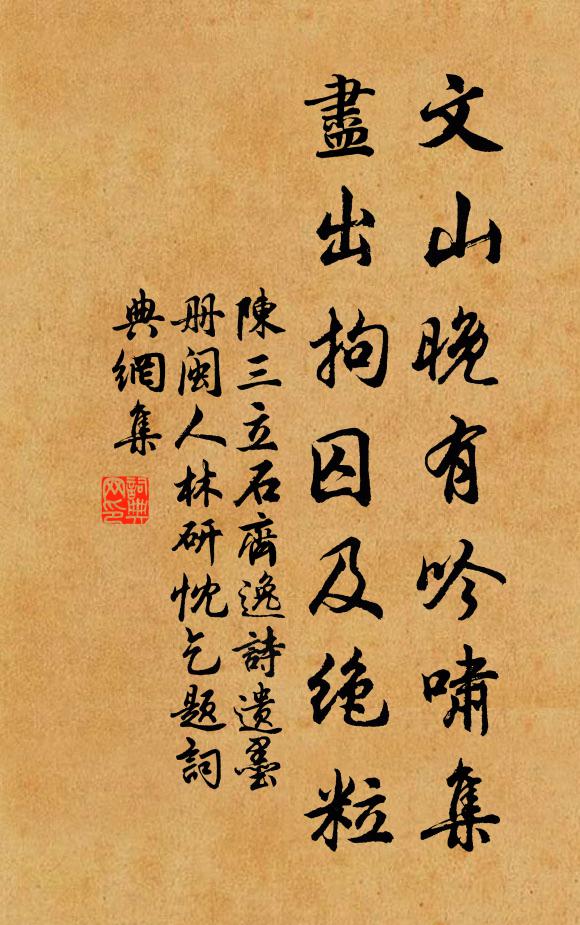 文山晚有吟嘯集
盡出拘囚及絶粒
陳三立石齊逸詩遺墨
册閩人林研忱乞題詞
典網集
詞典
网印